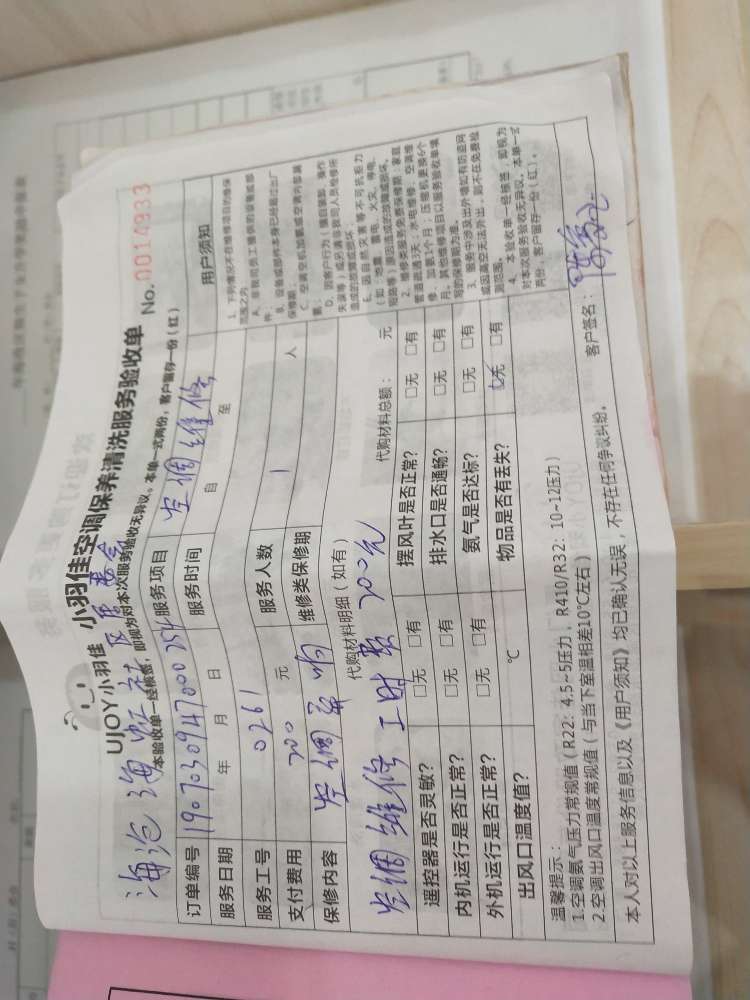 UJOY小羽佳 小羽佳空调保养清洗服务验收单 No. 0014933
本验收单一经核签，即视为对本次服务验收无异议。本单一式两份，客户留存一份（红）
海沧海虹社区居委会
订单编号 1907030947000254 服务项目 空调维修 用户须知
服务日期 年 月 日 服务时间 自 至
服务工号 0261 服务人数 1 人
支付费用 200 元 维修类保修期
保修内容 空调 响
代购材料明细（如有） 代购材料总额： 元
空调维修 工时费 200元
遥控器是否灵敏？ □无 □有 摆风叶是否正常？ □无 □有
内机运行是否正常？ □无 □有 排水口是否通畅？ □无 □有
外机运行是否正常？ □无 □有 氨气是否达标？ □无 □有
出风口温度值？ ℃ 物品是否有丢失？ □无 □有
1. 下列情况不在维修项目的维保范围之内
A. 非我司员工提供的设备或部件；
B. 设备或部件本身已经超过出厂保修期；
C. 空调空机加氨或空调内部漏氨；
D. 因客户行为（擅自装卸、操作失误等）或另请非我司人员检修所造成的故障或损坏
E. 因自然灾害等不可抗拒力（如：地震、雷电、火灾、停电、短路等）原因造成的故障或损坏。
2. 维修类服务免费保修期：家庭管道疏通3天；水电维修、空调维修、加氨1个月；压缩机更换6个月。其他维修项目以服务验收单填写的保修期为准。
3. 服务中涉及出外墙如有防盗网或因高空无法外出，则不在免费检测范围。
4. 本验收单一经核签，即视为对本次服务验收无异议。本单一式两份，客户留存一份（红）。
温馨提示：
1.空调氨气压力常规值（R22：4.5~5压力，R410/R32：10~12压力）
2.空调出风口温度常规值（与当下室温相差10℃左右）
本人对以上服务信息以及《用户须知》均已确认无误，不存在任何争议纠纷。 客户签名：